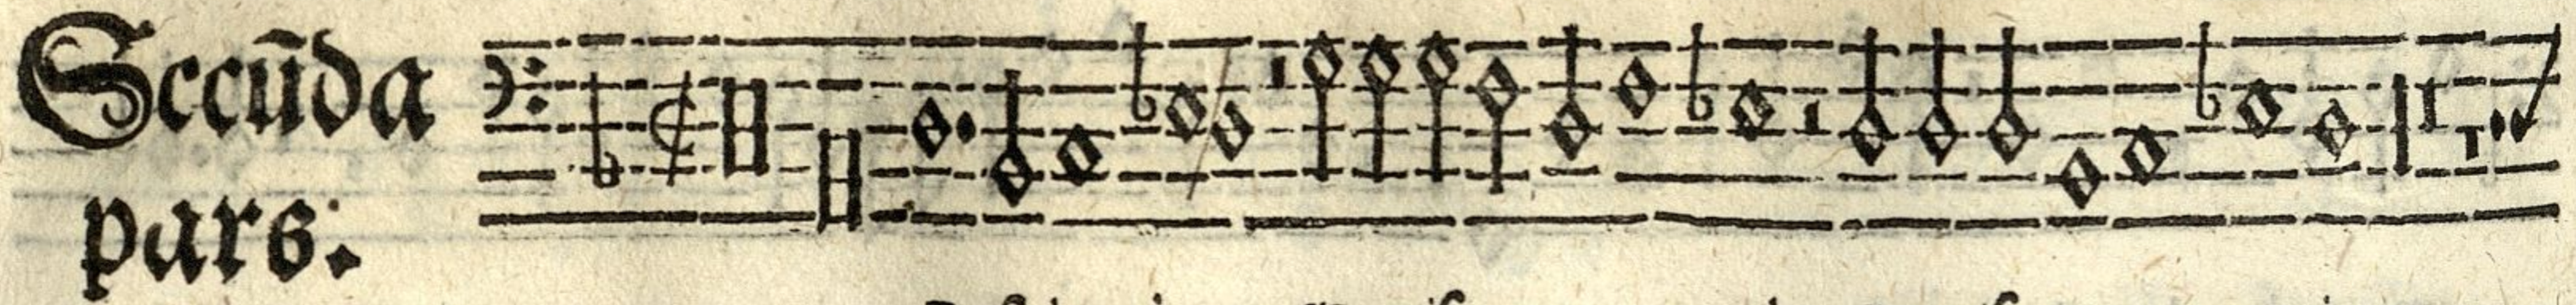 Secũda
pars.